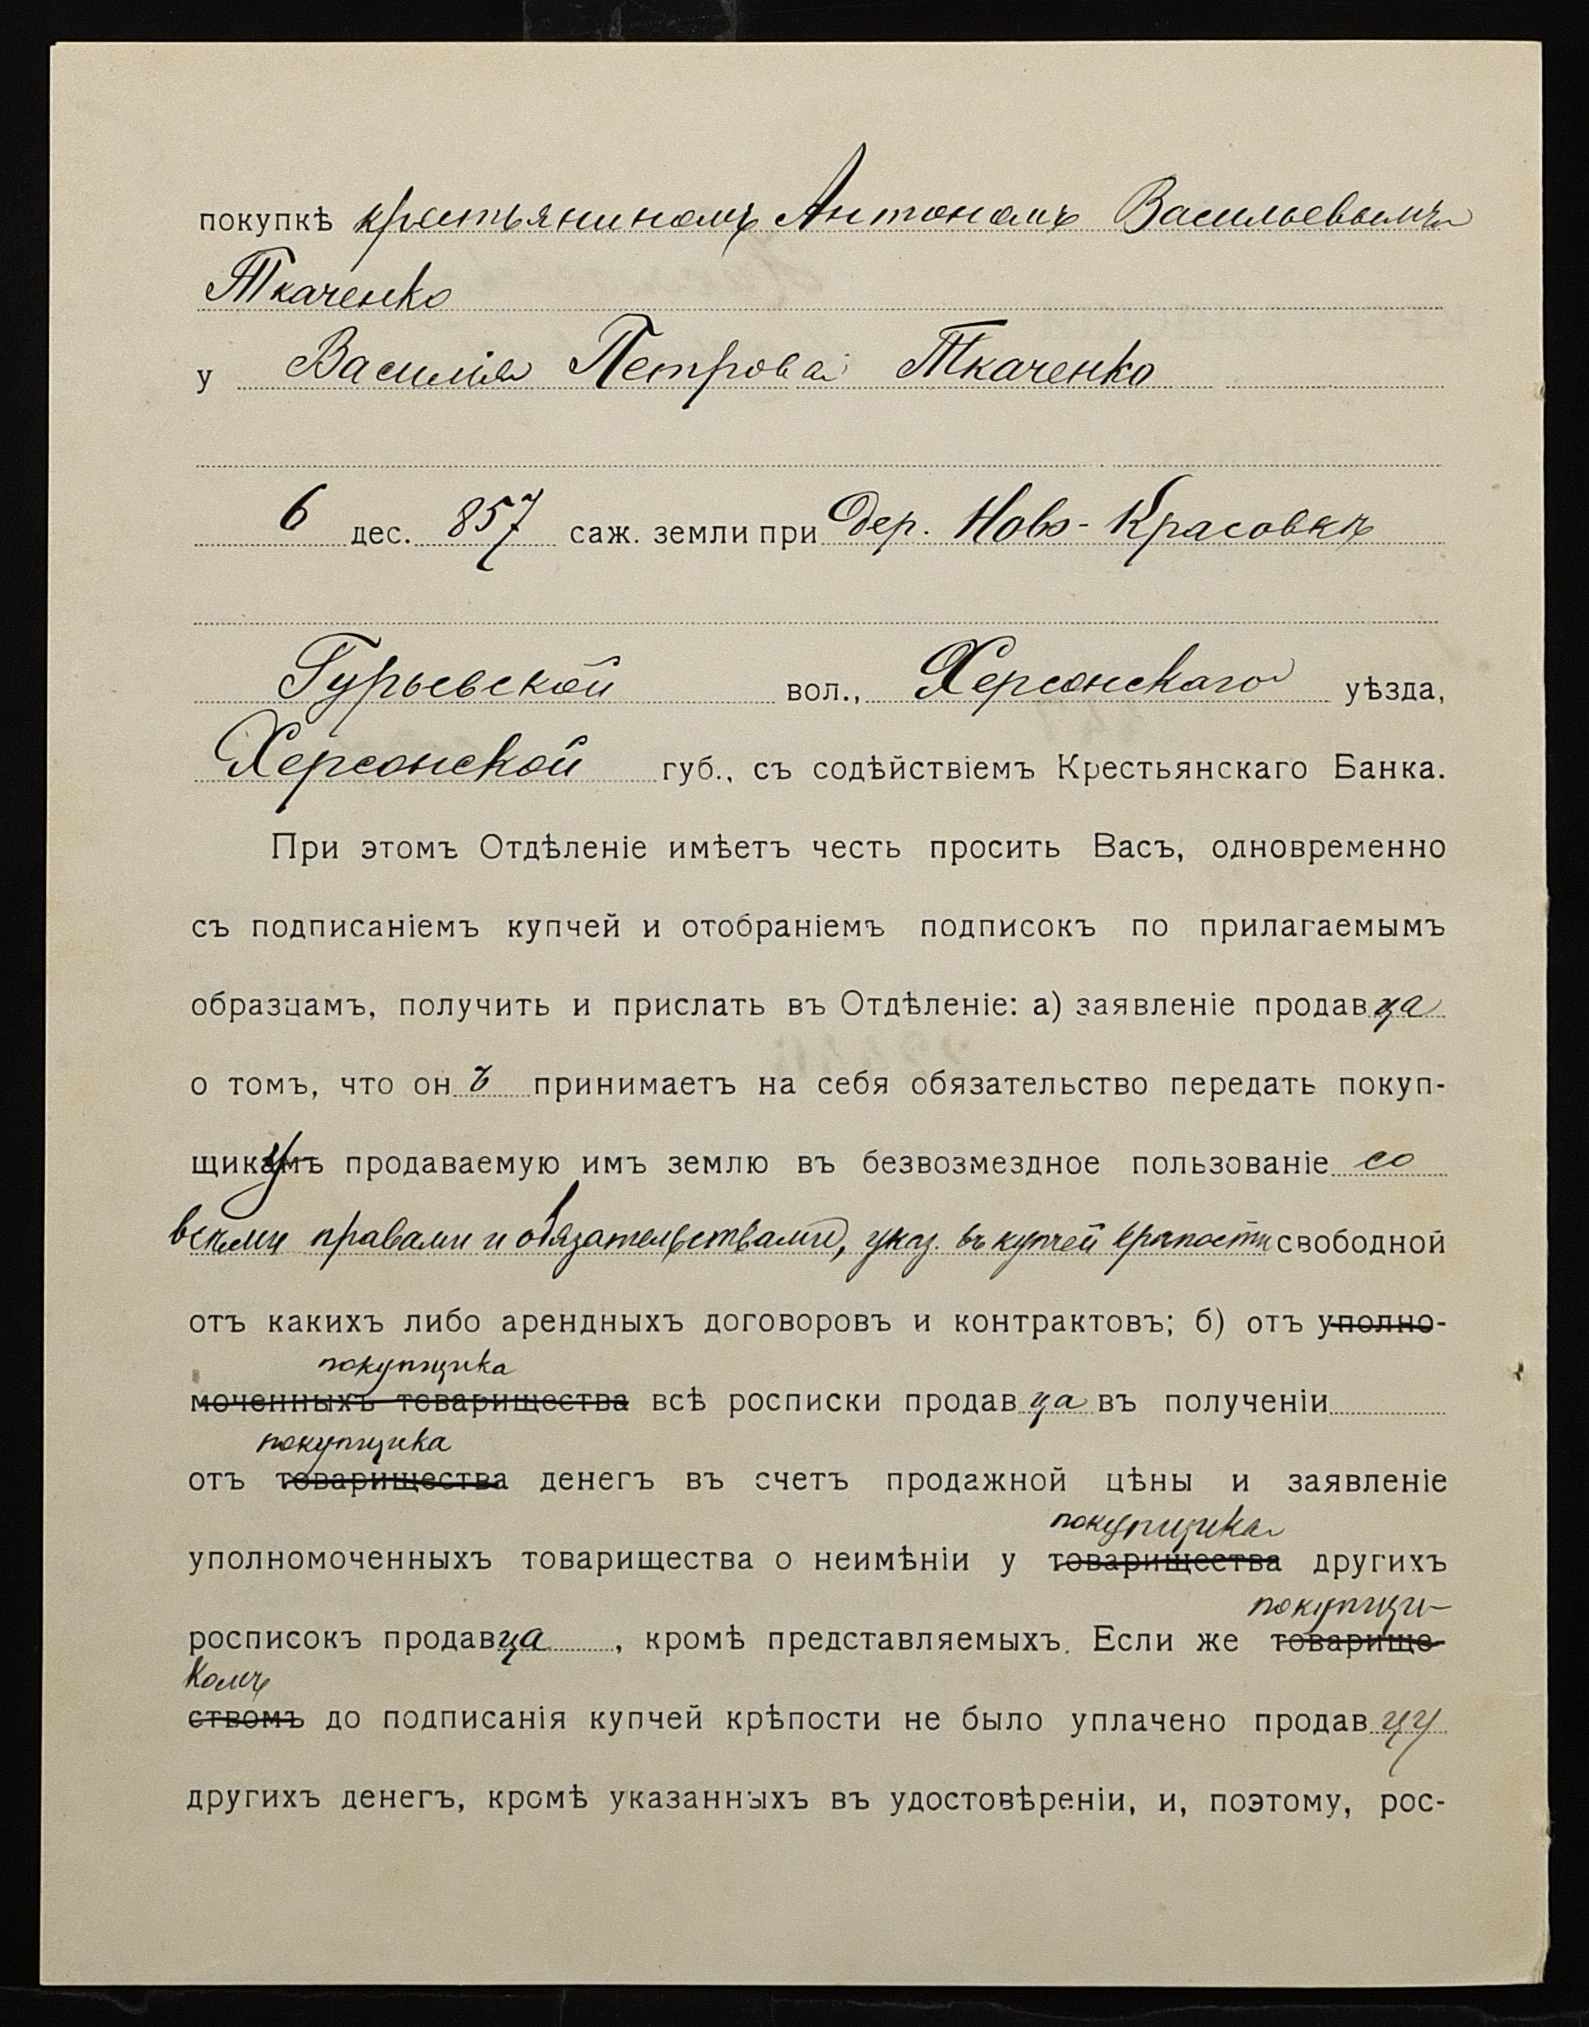 покупкѣ крестьяниномъ Антономъ Васильевымъ
Ткаченко
у Василія Петрова Ткаченко
6 дес. 857 саж. земли при дер. Ново-Красовкѣ
Гурьевской вол., Херсонскаго уѣзда,
Херсонской губ., съ содѣйствіемъ Крестьянскаго Банка.
При этомъ Отдѣленіе имѣетъ честь просить Васъ, одновременно
съ подписаніемъ купчей и отобраніемъ подписокъ по прилагаемымъ
образцамъ, получить и прислать въ Отдѣленіе: а) заявленіе продавца
о томъ, что онъ принимаетъ на себя обязательство передать покуп-
щику продаваемую имъ землю въ безвозмездное пользованіе со
всѣми правами и обязательствами, указ. въ купчей крѣпости свободной
отъ какихъ либо арендныхъ договоровъ и контрактовъ; б) отъ уполно-
покупщика
моченныхъ товарищества всѣ росписки продавца въ полученіи
покупщика
отъ товарищества денегъ въ счетъ продажной цѣны и заявленіе
покупщика
уполномоченныхъ товарищества о неимѣніи у товарищества другихъ
покупщи-
росписокъ продавца, кромѣ представляемыхъ. Если же товарище-
комъ
ствомъ до подписанія купчей крѣпости не было уплачено продавцу
другихъ денегъ, кромѣ указанныхъ въ удостовѣреніи, и, поэтому, рос-